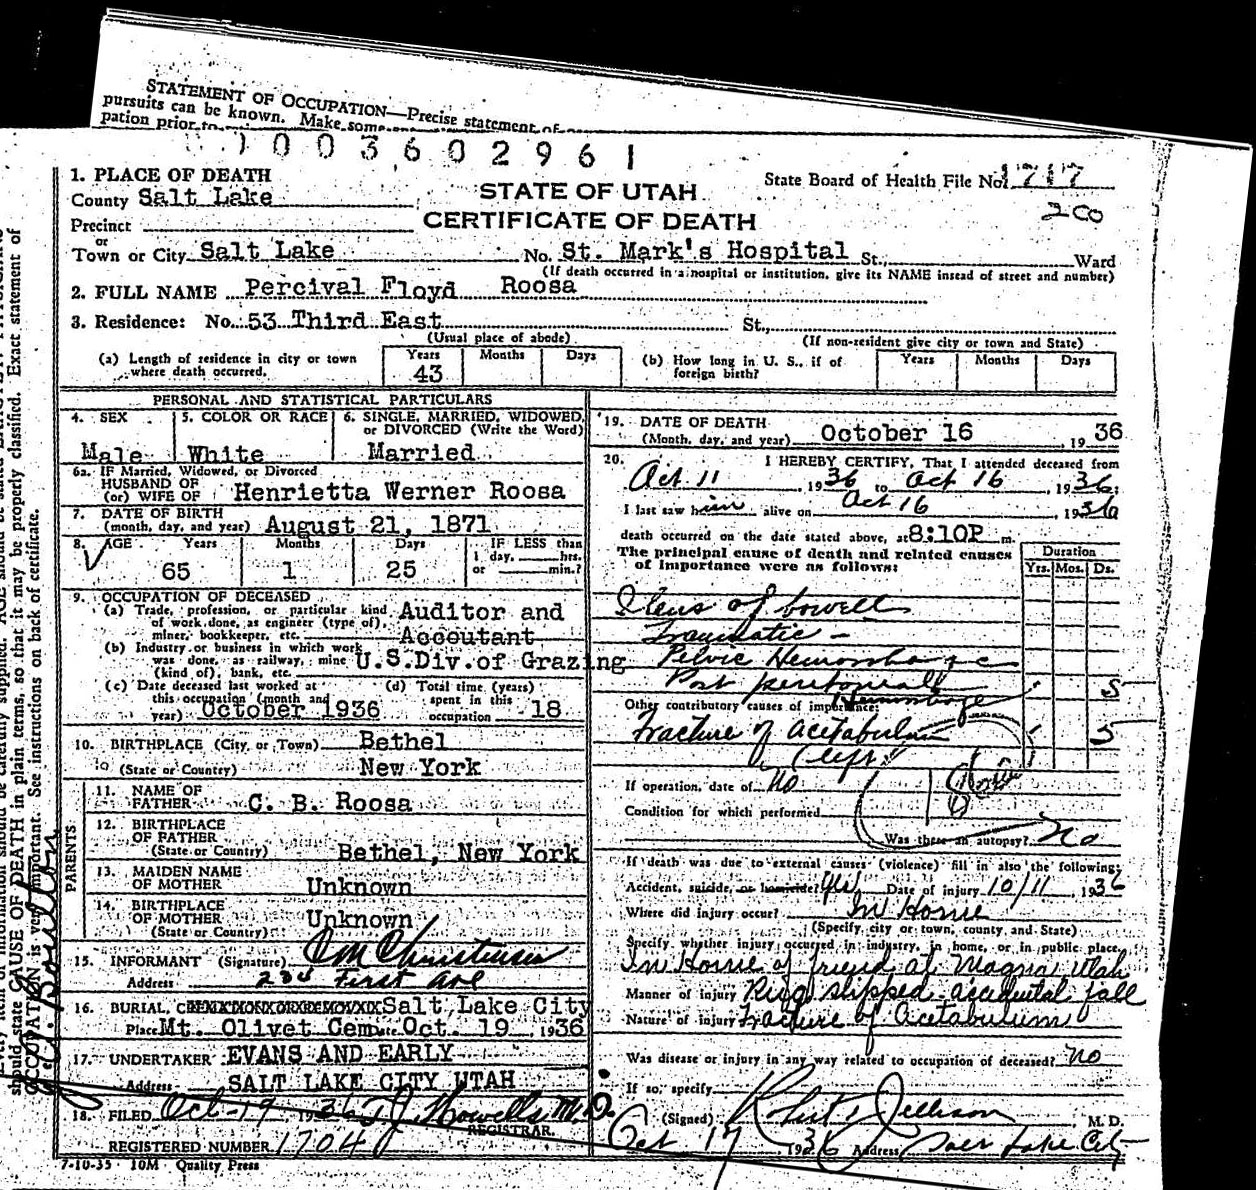 STATEMENT OF OCCUPATION—Precise statement of
pursuits can be known. Make some
pation prior to
1003602961
State Board of Health File No. 1717
200
STATE OF UTAH
CERTIFICATE OF DEATH
1. PLACE OF DEATH
County Salt Lake
Precinct
or
Town or City Salt Lake No. St. Mark's Hospital St., Ward
(If death occurred in a hospital or institution, give its NAME insead of street and number)
2. FULL NAME Percival Floyd Roosa
3. Residence: No. 53 Third East St.,
(Usual place of abode) (If non-resident give city or town and State)
(a) Length of residence in city or town where death occurred. Years 43 Months Days
(b) How long in U. S., if of foreign birth? Years Months Days
PERSONAL AND STATISTICAL PARTICULARS
4. SEX Male
5. COLOR OR RACE White
6. SINGLE, MARRIED, WIDOWED, or DIVORCED (Write the Word) Married
6a. IF Married, Widowed, or Divorced
HUSBAND OF
(or) WIFE OF Henrietta Werner Roosa
7. DATE OF BIRTH
(month, day, and year) August 21, 1871
8. AGE Years 65 Months 1 Days 25 IF LESS than 1 day, hrs. or min.?
9. OCCUPATION OF DECEASED
(a) Trade, profession, or particular kind of work done, as engineer (type of), miner, bookkeeper, etc. Auditor and Accoutant
(b) Industry or business in which work was done, as railway, mine (kind of), bank, etc. U.S.Div.of Grazing
(c) Date deceased last worked at this occupation (month and year) October 1936
(d) Total time (years) spent in this occupation 18
10. BIRTHPLACE (City or Town) Bethel
(State or Country) New York
PARENTS
11. NAME OF FATHER C. B. Roosa
12. BIRTHPLACE OF FATHER
(State or Country) Bethel, New York
13. MAIDEN NAME OF MOTHER Unknown
14. BIRTHPLACE OF MOTHER
(State or Country) Unknown
15. INFORMANT (Signature) C M Christensen
Address First Ave
16. BURIAL, Salt Lake City
Place Mt. Olivet Cem Date Oct. 19 1936
17. UNDERTAKER EVANS AND EARLY
Address SALT LAKE CITY UTAH
18. FILED Oct-19 1936 T J Howells M.D.
REGISTRAR
REGISTERED NUMBER 1704
7-10-35 10M Quality Press
19. DATE OF DEATH
(Month, day, and year) October 16, 1936
20. I HEREBY CERTIFY, That I attended deceased from
Oct 11 1936 to Oct 16 1936;
I last saw him alive on Oct 16 1936
death occurred on the date stated above, at 8:10P m.
The principal cause of death and related causes of importance were as follows:
Duration
Yrs. Mos. Ds.
Ileus of bowell
Traumatic —
Pelvic Hemorrhage
Post peritoneal Hemorrhage 5
Other contributory causes of importance:
Fracture of Acetabulum 5
(left)
If operation, date of no
Condition for which performed
Was there an autopsy? no
If death was due to external causes (violence) fill in also the following:
Accident, suicide, or homicide? Yes Date of injury 10/11 1936
Where did injury occur? In Home
(Specify city or town, county and State)
Specify whether injury occurred in industry, in home, or in public place.
In Home of friend at Magna Utah
Manner of injury Rug slipped - accidental fall
Nature of injury Fracture of Acetabulum
Was disease or injury in any way related to occupation of deceased? no
If so, specify
(Signed) Robert T Jellison M. D.
Oct 17 1936 Address Salt Lake City
should state CAUSE OF DEATH in plain terms, so that it may be properly classified. Exact statement of
OCCUPATION is very important. See instructions on back of certificate.